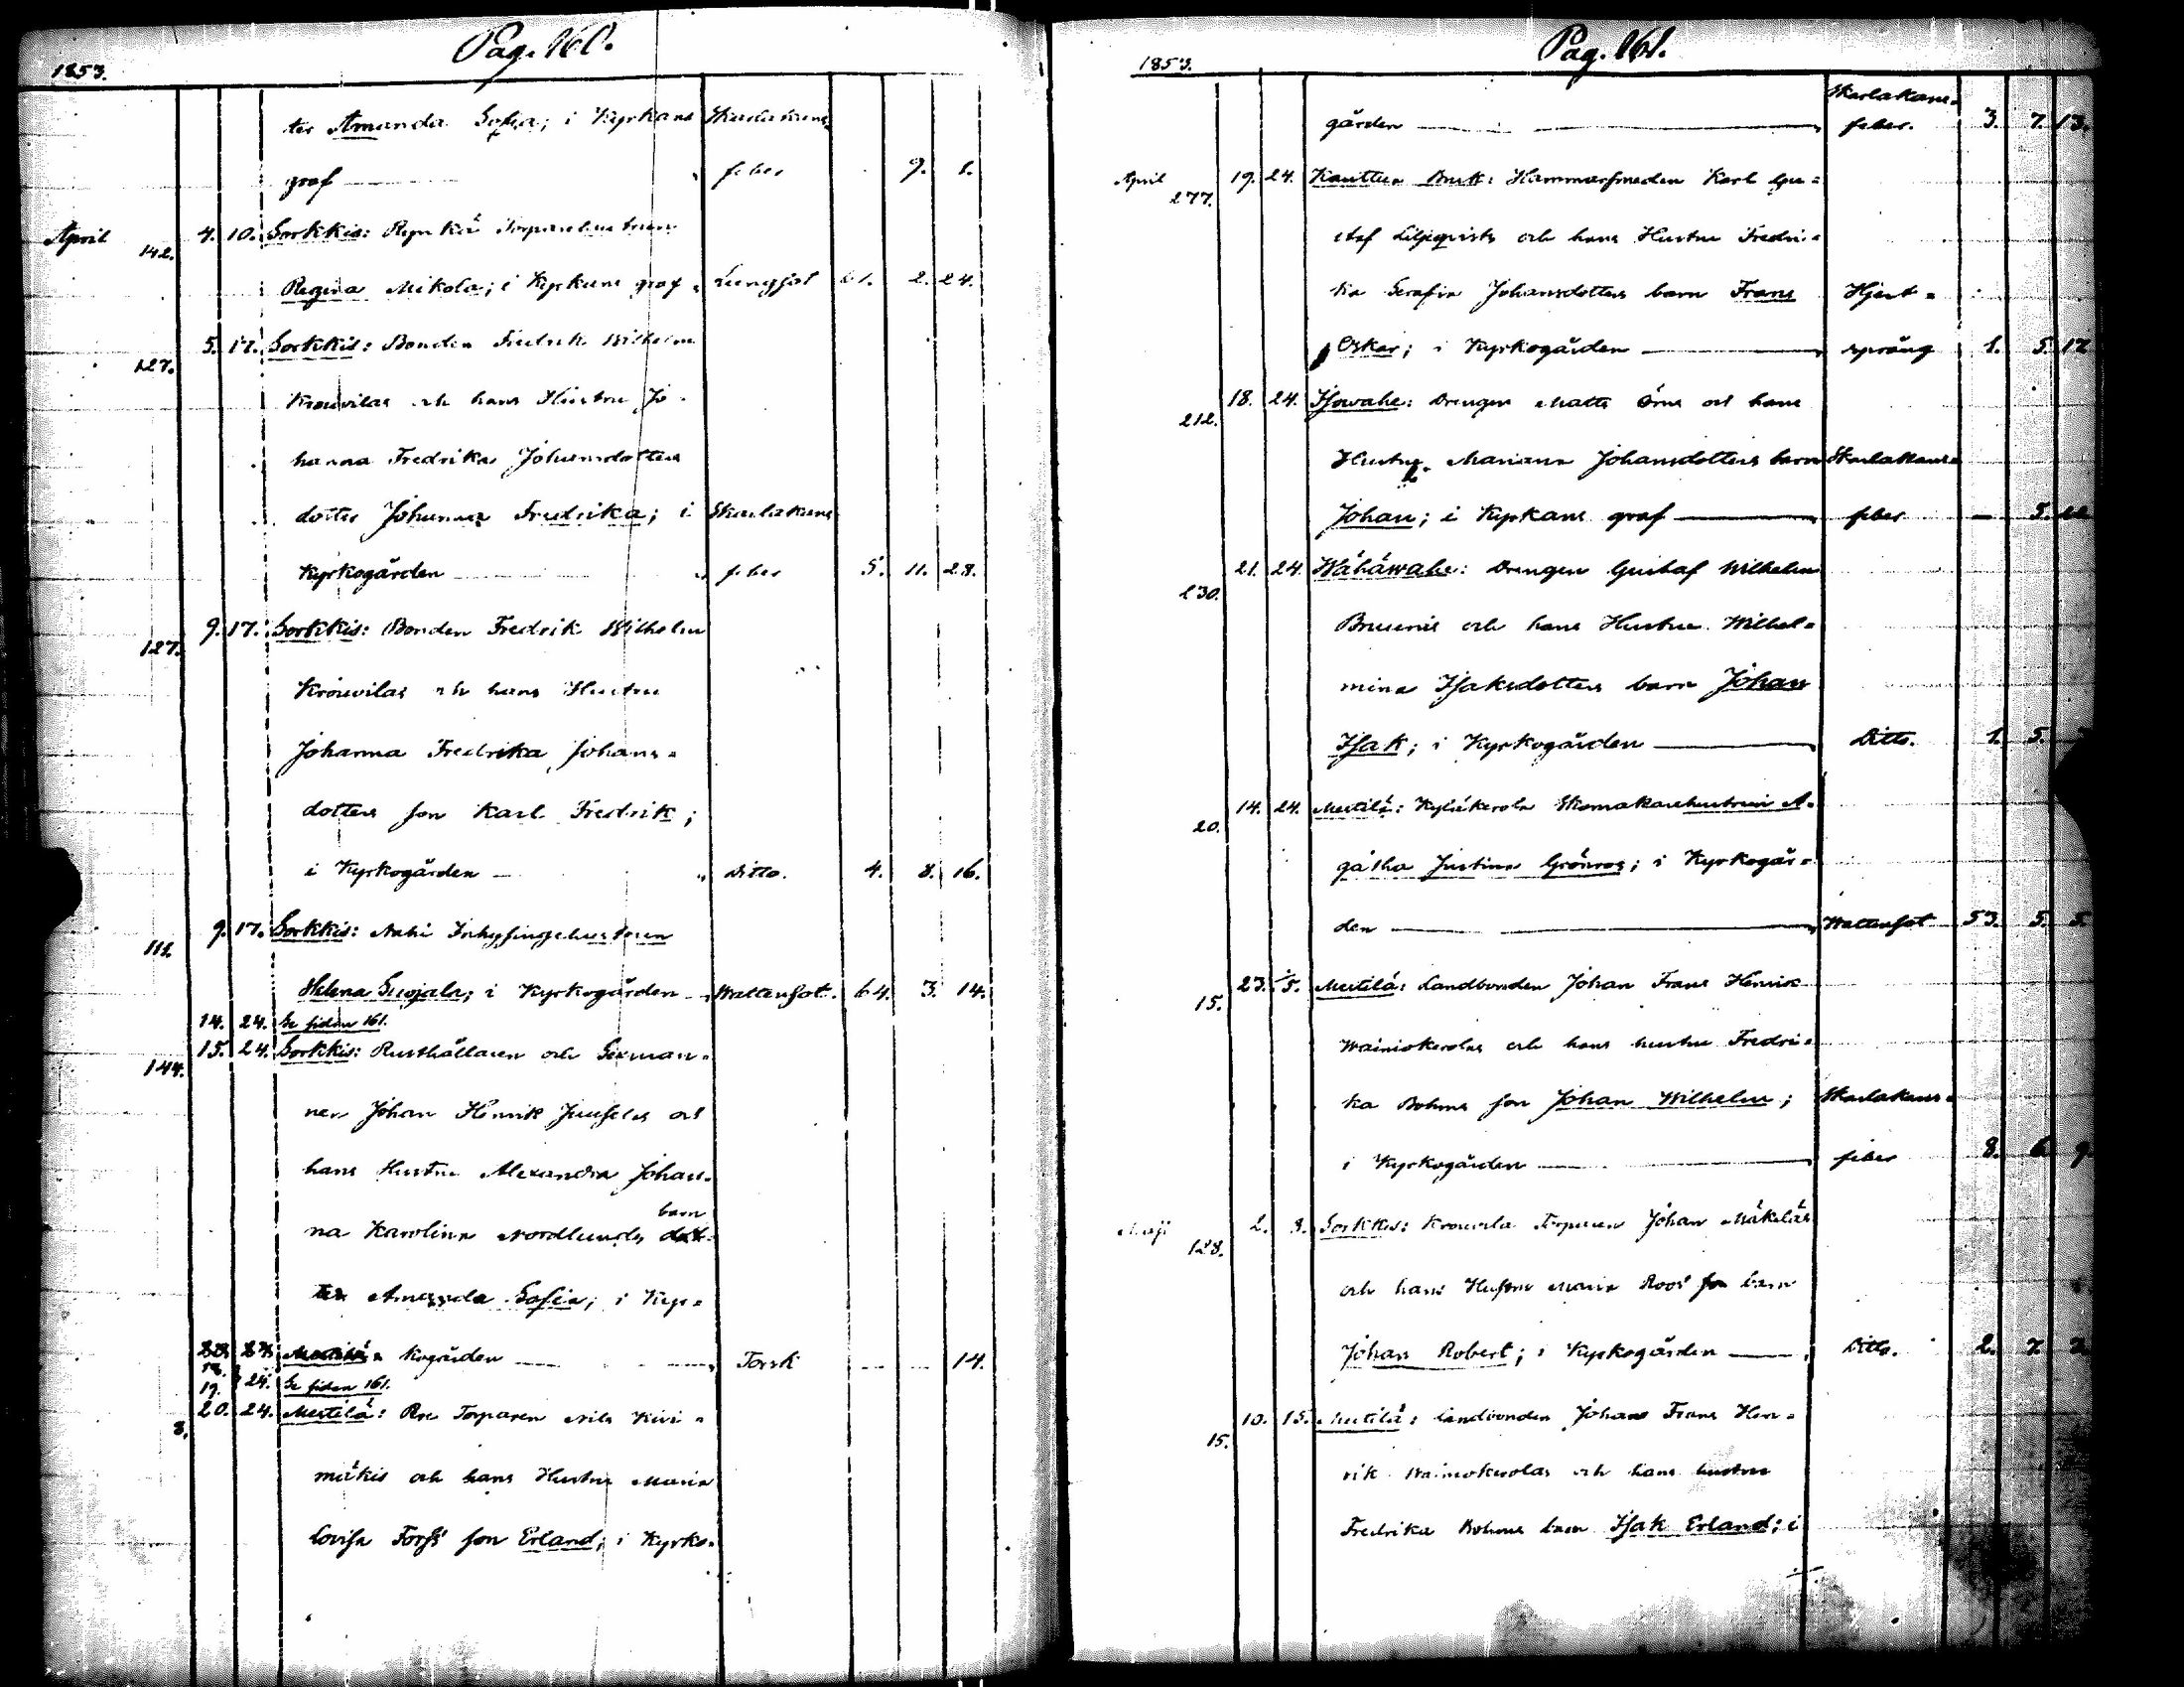 Pag. 160.
1853.
ter Amanda Sofia; i Kyrkans Skarlakans
graf feber 9. 1.
April 142. 4. 10. Sorkkis: Torparehustrun
Regina Mikola; i Kyrkans graf Lungsot 61. 2. 24.
127. 5. 17. Sorkkis: Bonden Fredrik Wilhelm
Krouvilas och hans Hustru Jo-
hanna Fredrika Johansdotters
dotter Johanna Fredrika; i Skarlakans
Kyrkogården feber 5. 11. 28.
127. 9. 17. Sorkkis: Bonden Fredrik Wilhelm
Krouvilas och hans Hustru
Johanna Fredrika Johans=
dotters son Karl Fredrik;
i Kyrkogården Ditto. 4. 8. 16.
111. 9. 17. Sorkkis: Inhysingehustrun
Helena Suojala; i Kyrkogården Wattensot. 64. 3. 14.
14. 24. Se sidan 161.
144. 15. 24. Sorkkis: Rusthållaren och Sexman=
nen Johan Henrik Juuselas och
hans Hustru Alexandra Johan=
barn
na Karolina Nordlunds dot=
ter Amanda Sofia; i Kyr=
kogården Torsk 14.
18. 19. 24. Se sidan 161.
8. 20. 24. Mestilä: Torparen Nils Kivi=
mäkis och hans Hustru Maria
Lovisa Forss' son Erland; i Kyrko=
Pag. 161.
1853.
Skarlakans=
gården feber. 3. 7. 13.
April 277. 19. 24. Kauttua Bruk: Hammarsmeden Karl Gu=
staf Liljeqvists och hans Hustru Fredri=
ka Serafia Johansdotters barn Frans Hjert=
Oskar; i Kyrkogården språng 1. 5. 12
212. 18. 24. Isowahe: Drengen Matts Örns och hans
Hustru Mariana Johansdotters barn Skarlakans=
Johan; i Kyrkans graf feber — 5. 22
230. 21. 24. Wähäwahe: Drengen Gustaf Wilhelm
och hans Hustru Wilhel=
mina Isaksdotters barn Johan
Isak; i Kyrkogården Ditto. 1. 5.
20. 14. 24. Mestilä: Kyläkerola Skomakarehustrun A=
gatha Justina Grönroos; i Kyrkogår=
den Wattensot 53. 5. 5.
15. 23. 1/5. Mestilä: Landbonden Johan Frans Henrik
Wainiokerolas och hans hustru Fredri=
ka Bohms son Johan Wilhelm; Skarlakans=
i Kyrkogården feber 8. 6 9
Maji 128. 2. 8. Sorkkis: Krouvila Torparen Johan Mäkeläs
och hans Hustru Maria Roos' barn
Johan Robert; i Kyrkogården Ditto. 2. 7 2
15. 10. 15. Mestilä: Landbonden Johan Frans Hen=
rik Wainiokerolas och hans hustru
Fredrika Bohms barn Isak Erland; i